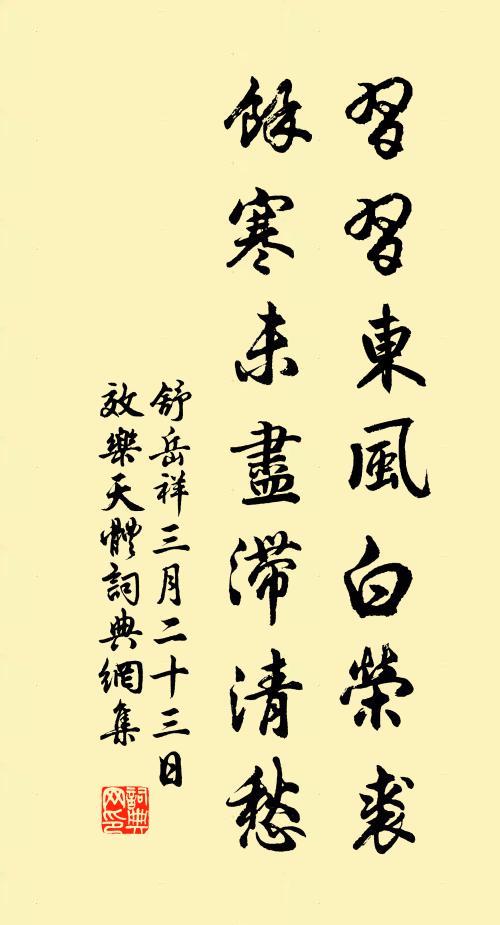 習習東風白榮裘
餘寒未盡滯清愁
舒岳祥三月二十三日
效樂天體詞典網集
詞典
网印